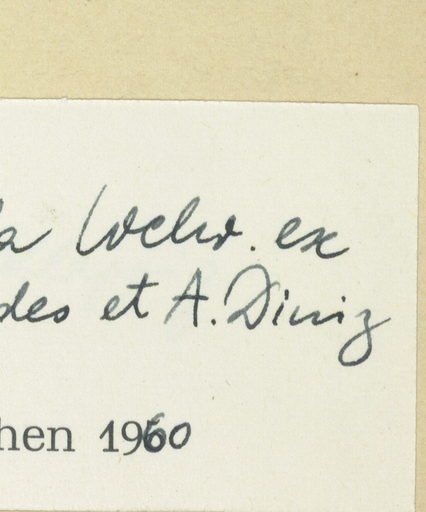 a Welw. ex
des et A. Diniz
hen 1960